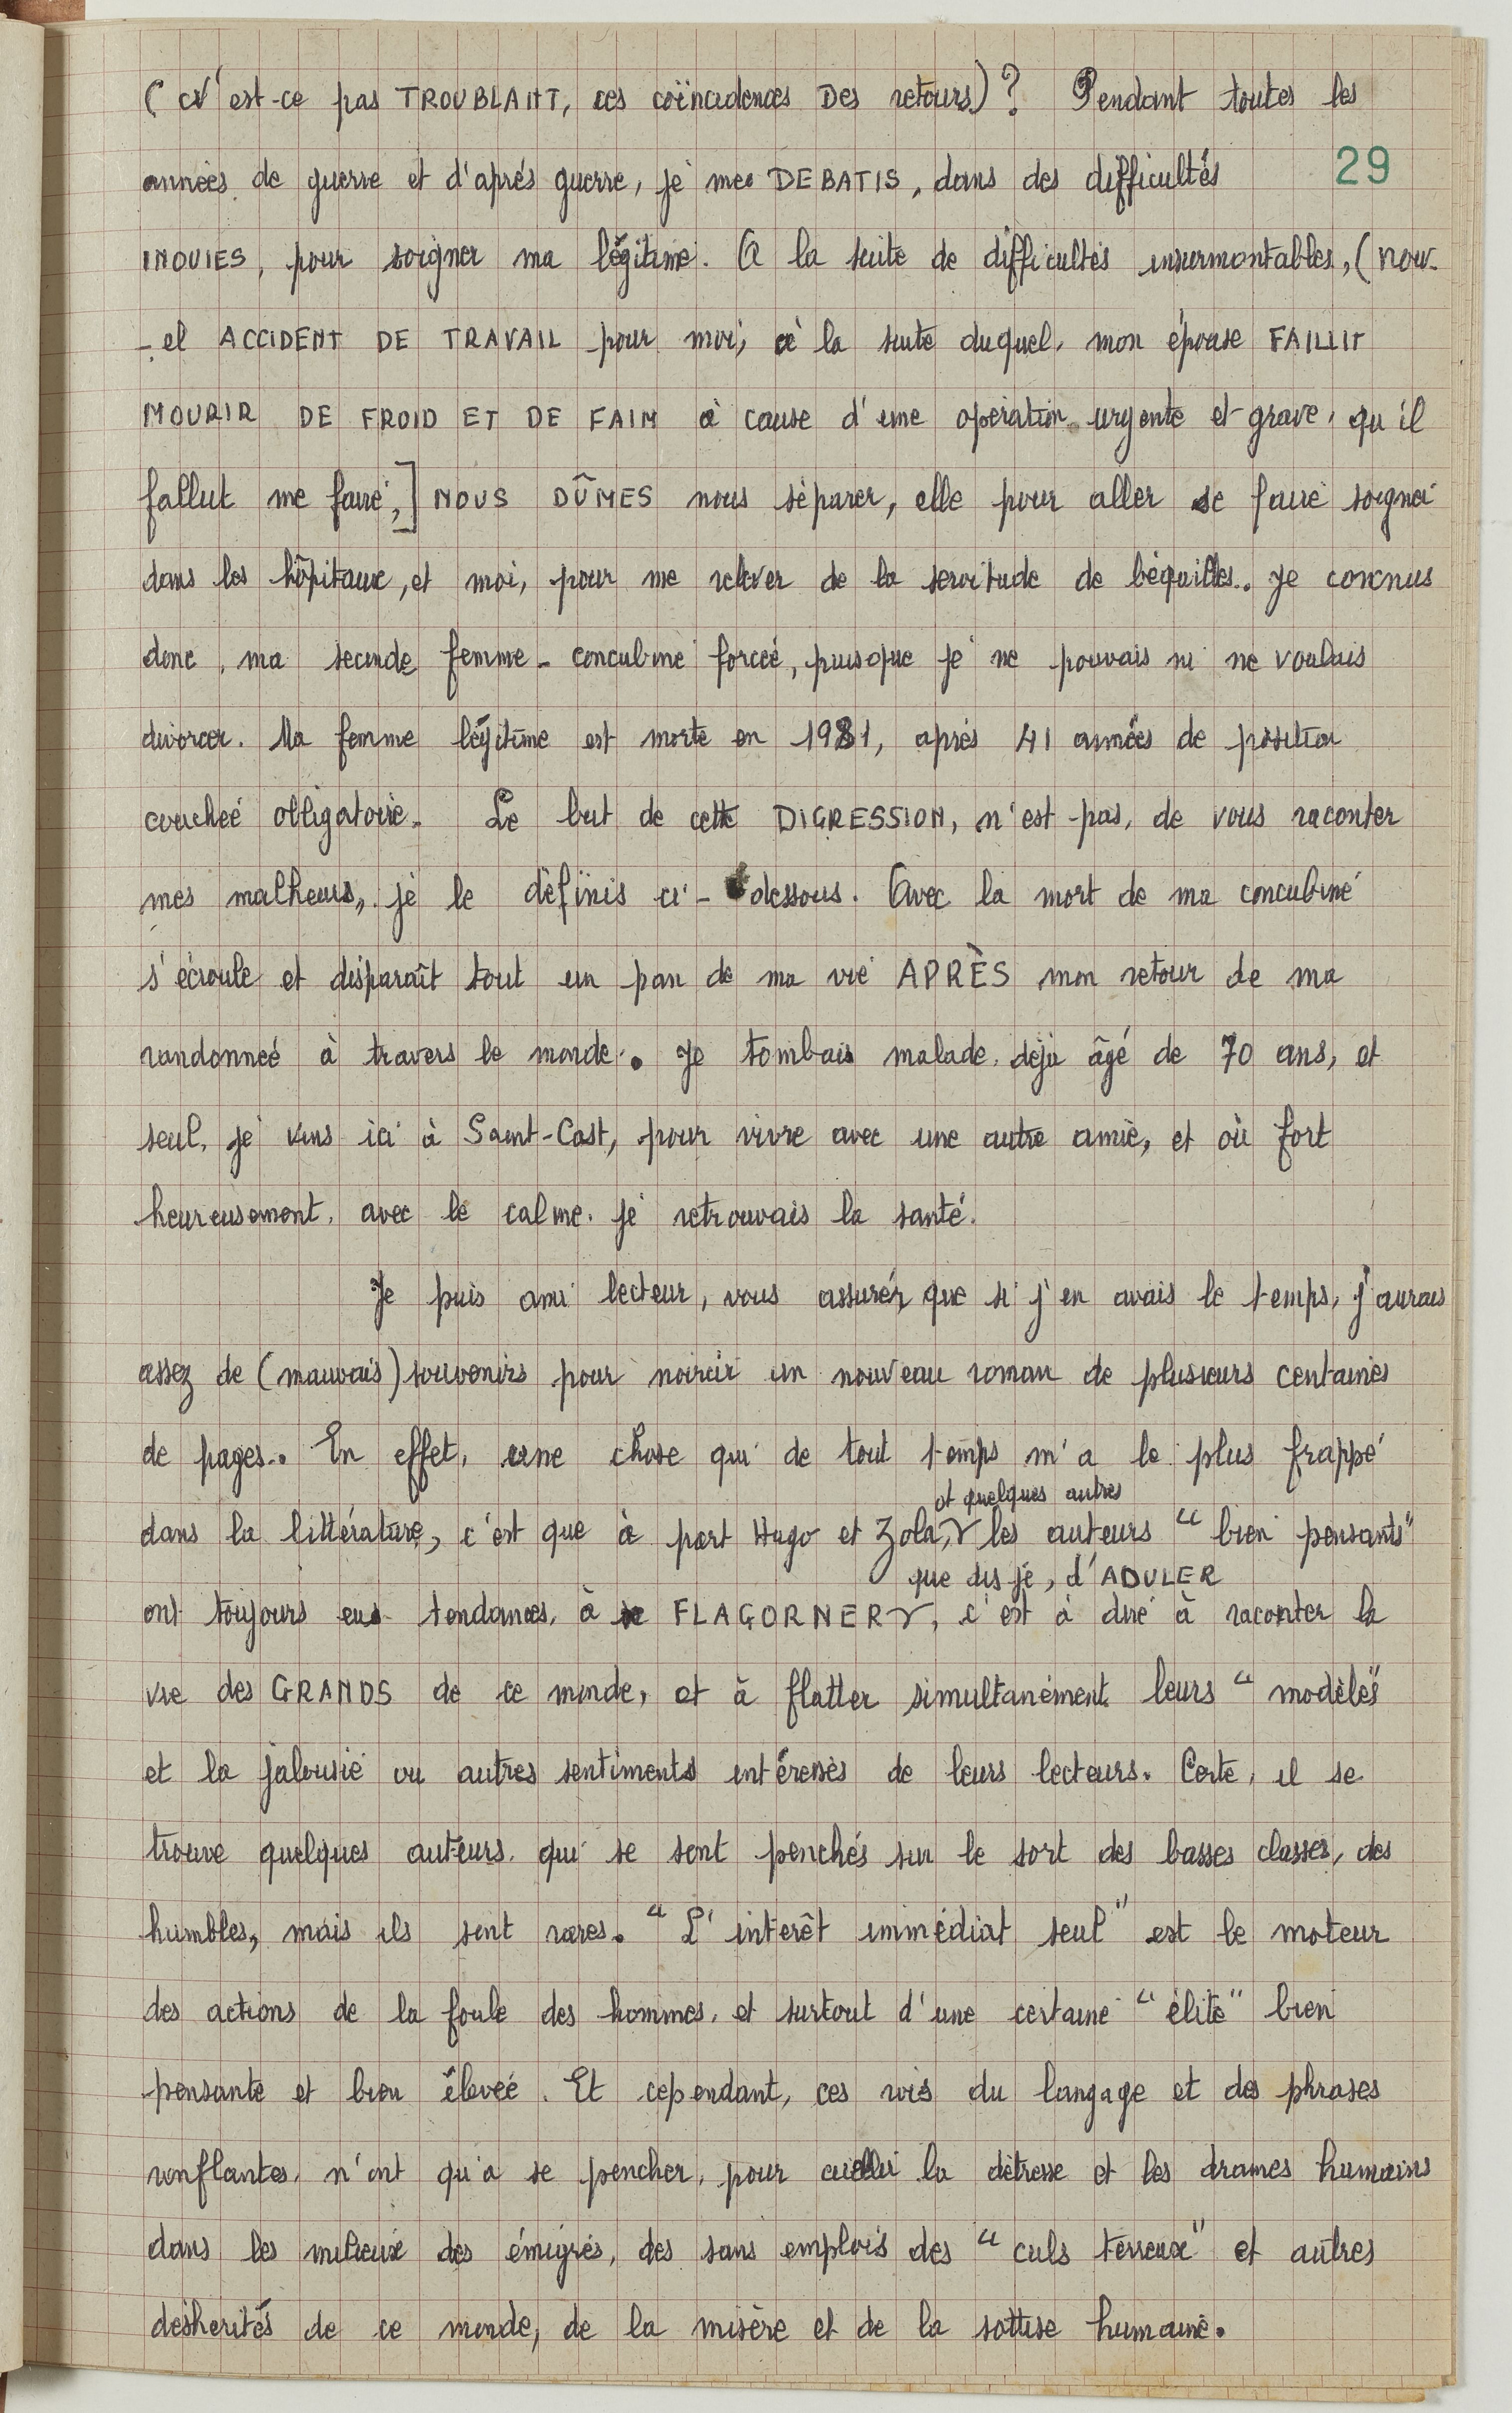 (N'est-ce pas TROUBLANT, ces coïncidences Des retours)? Pendant toutes les
années de guerre et d'après guerre, je me DEBATIS, dans des difficultés
29
INOUIES, pour soigner ma légitime. A la suite de difficultés insurmontables, (nouv-
-el ACCIDENT DE TRAVAIL pour moi, à la suite duquel, mon épouse FAILLIT
MOURIR DE FROID ET DE FAIM à cause d'une opération urgente et grave, qu'il
fallut me faire,] NOUS DÛMES nous séparer, elle pour aller se faire soigner
dans les hôpitaux, et moi, pour me relever de la servitude de béquilles. Je connus
donc, ma seconde femme - concubine forcée, puisque je ne pouvais ni ne voulais
divorcer. Ma femme légitime est morte en 1981, après 41 années de position
couchée obligatoire. Le but de cette DIGRESSION, n'est-pas, de vous raconter
mes malheurs, je le définis ci-dessous. Avec la mort de ma concubine
s'écroule et disparaît tout un pan de ma vie APRÈS mon retour de ma
randonnée à travers le monde. Je tombais malade, déjà âgé de 70 ans, et
seul, je vins ici à Saint-Cast, pour vivre avec une autre amie, et où fort
heureusement, avec le calme, je retrouvais la santé.
Je puis ami lecteur, vous assurer que si j'en avais le temps, j'aurais
assez de (mauvais) souvenirs pour noircir un nouveau roman de plusieurs centaines
de pages. En effet, une chose qui de tout temps m'a le plus frappé
et quelques autres
dans la littérature, c'est que à part Hugo et Zola, les auteurs "bien pensants"
que dis je, d'ADULER
ont toujours eus tendances, à FLAGORNER, c'est à dire à raconter la
vie des GRANDS de ce monde, et à flatter simultanément leurs "modèles"
et la jalousie ou autres sentiments intéressés de leurs lecteurs. Certe, il se
trouve quelques auteurs, qui se sont penchés sur le sort des basses classes, des
humbles, mais ils sont rares. "L'interêt immédiat seul" est le moteur
des actions de la foule des hommes, et surtout d'une certaine "élite" bien
pensante et bien élevée. Et cependant, ces rois du langage et des phrases
ronflantes, n'ont qu'a se pencher, pour cueillir la détresse et les drames humains
dans les milieux des émigrés, des sans emplois des "culs terreux" et autres
déshérités de ce monde, de la misère et de la sottise humaine.